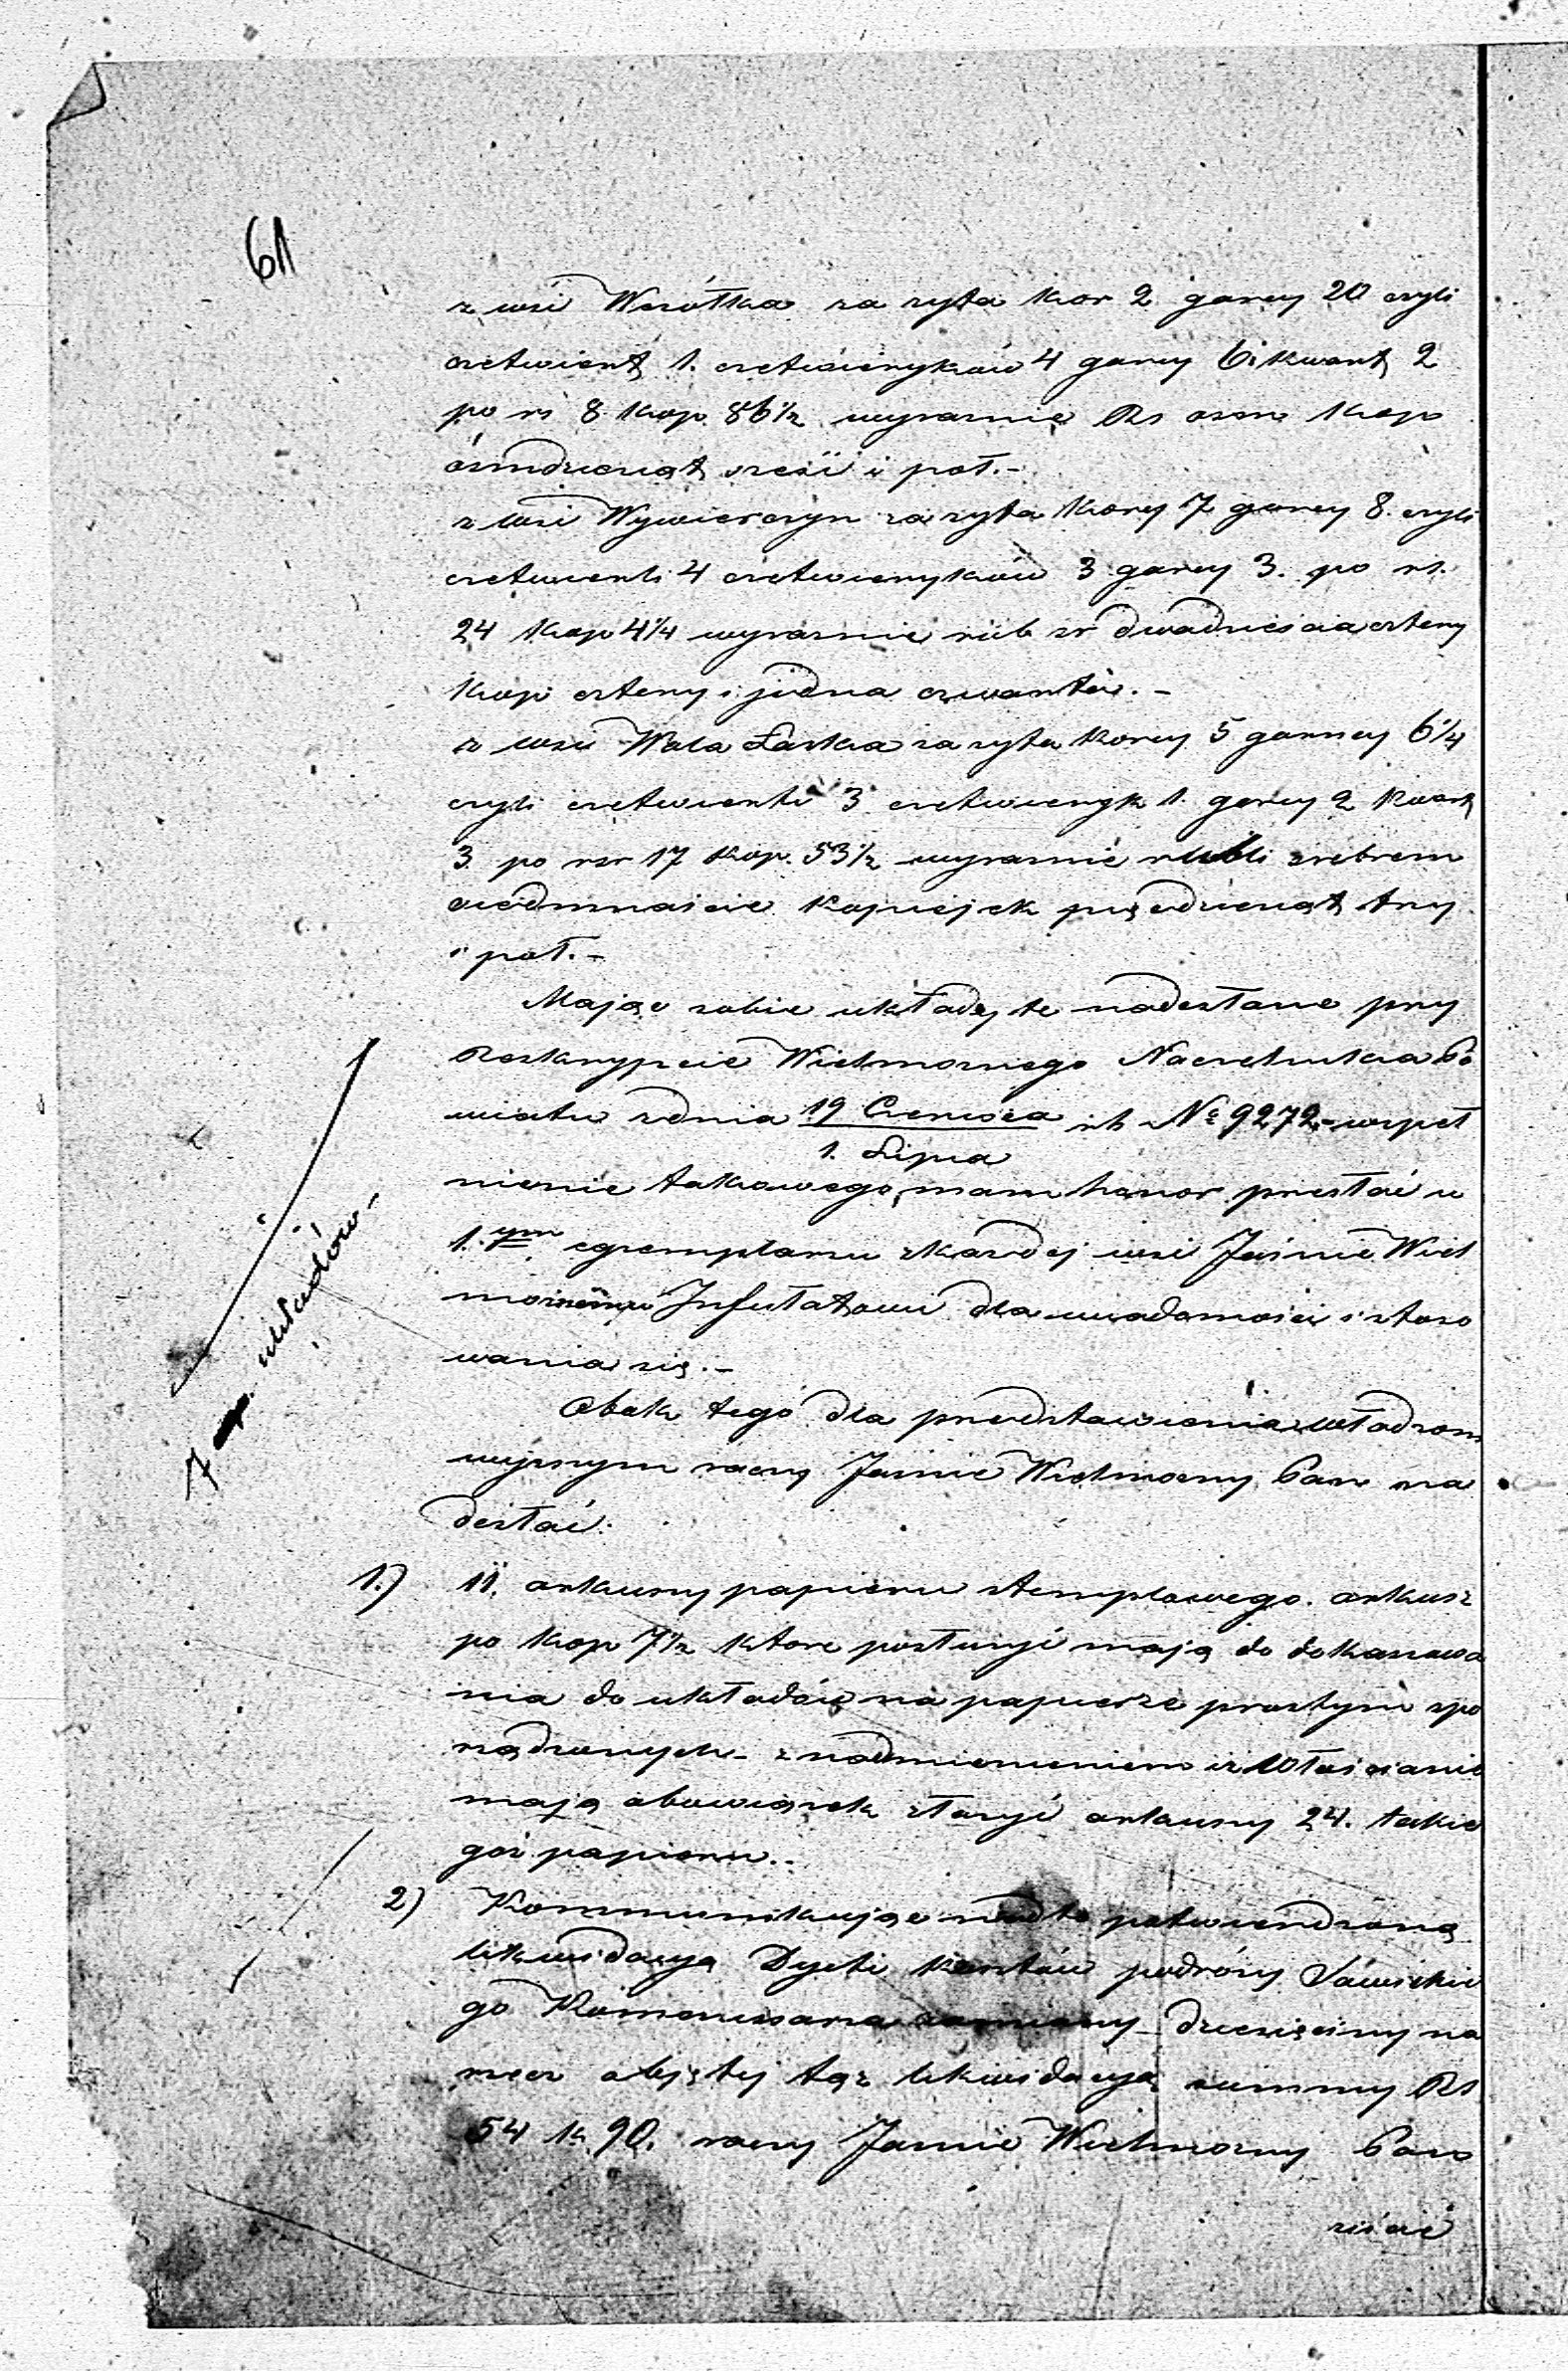 61
z wsi Wrzółka za żyta kor 2 garcy 20 czyli
czetwiert 1. czetwieryków 4 garcy 6 i kwart 2
po rs 8 kop. 86 1/2 wyraznie Rs osm kop
ósmdziesiąt sześć i poł.-
z wsi Wywierczyn za żyta korcy 7 garcy 8. czyli
czetwierti 4 czetwieryków 3 garcy 3. po rs.
24 kop 4 1/4 wyraznie rub sr dwadzieścia cztery
kop cztery i jedna czwarta.-
z wsi Wola Łaska za żyta korcy 5 garncy 6 1/4
czyli czetwierti 3 czetwieryk 1. garcy 2 kwart
3 po rsr 17 kop. 53 1/2 wyraznie rubli srebrem
siedmnaście kopiejek pięćdziesiąt trzy
i poł.-
Mając sobie układy te nadesłane przy
Reskrypcie Wielmoznego Naczelnika Po
wiatu z dnia 19 Czerwca rb № 9272,- w speł
1. Lipca
nienie takowego, mam honor przesłać w
1.ym egzemplarzu z kazdej wsi Jaśnie Wiel
moznemu Infułatowi dla wiadomości i stoso
wania się.-
7 układów-
Obok tego dla przedstawienia władzom
wyzszym raczy Jasnie Wielmozny Pan na
desłać:
1.) 11. arkuszy papieru stemplowego. arkusz
po kop 7 1/2 ktore posłużyć mają do dokassowa
nia do układów na papierze prostym spo
rządzonych- z nadmienieniem iz Włościanie
mają obowiązek złożyć arkuszy 24. takie
goż papieru.-
2) Kommunikując nadto potwierdzoną
likwidacyą Dyeti kosztów podróży Sawickie
go Kommissarza zamiany dziesięciny na
rzecz objętej tąż likwidacyą summy Rs
54 k. 90. raczy Jasnie Wielmozny Pan
ziścić